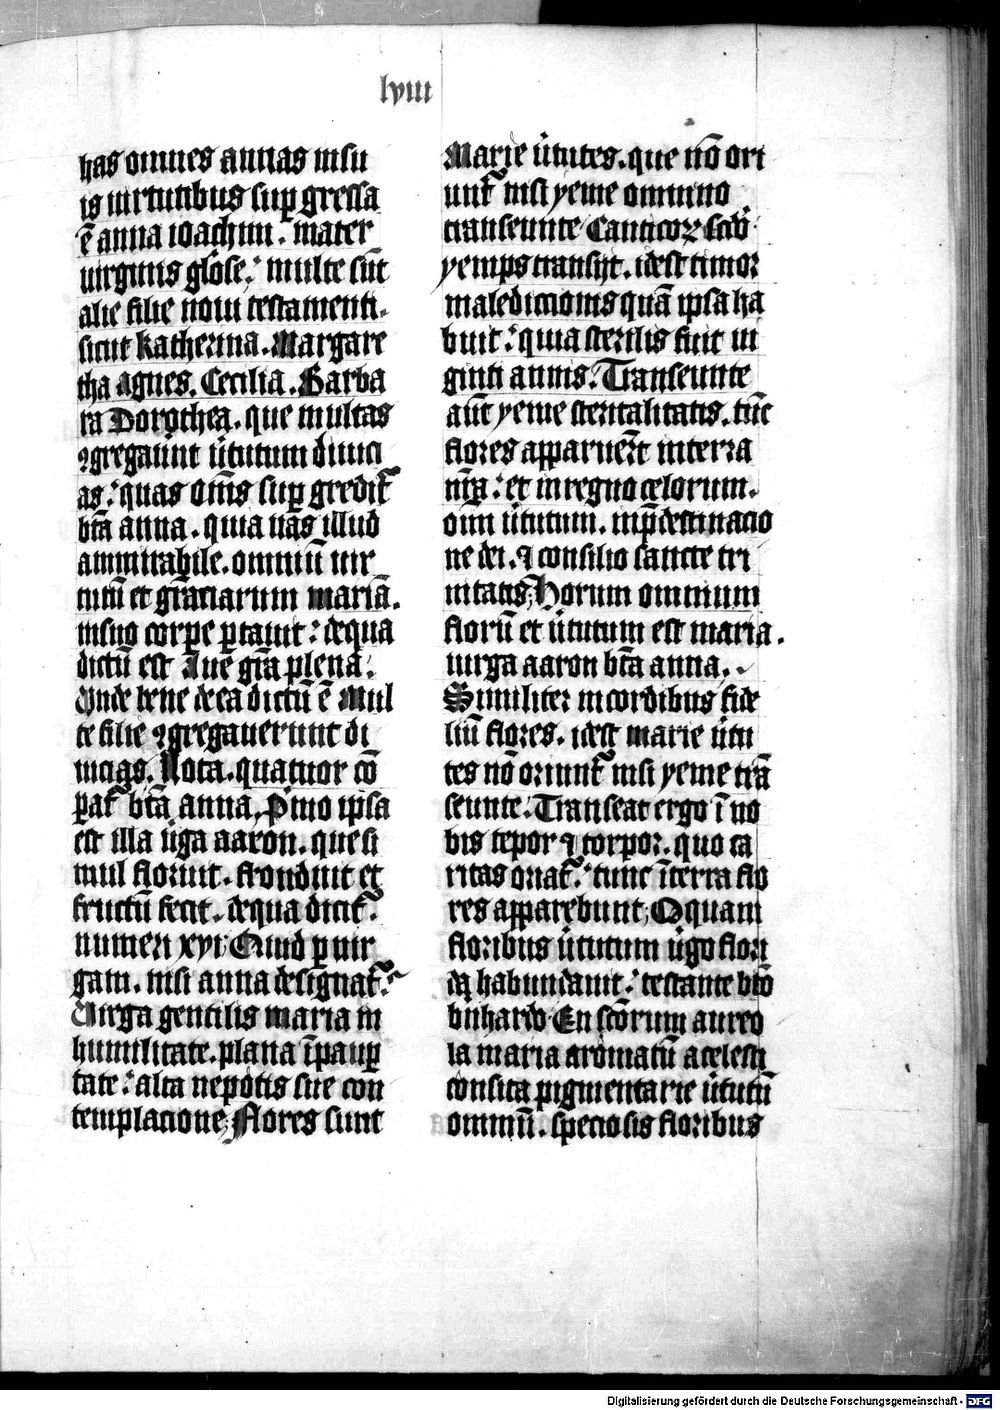 lviii
has omnes annas in su
is uirtutibus suꝑ gressa
ē anna ioachim. mater
uirginis gl̄ose. multe sūt
alie filie noui testamenti.
sicut katherina. Margare
tha agnes. Cecilia. Barba
ra Dorothea. que multas
ꝯgregaūnt ūtutum diuici
as. quas om̄s suꝑ gredit᷑
bt̄a anna. quia uas illud
ammirabile. omniū uir
tutū et gr̄aciarum mariā.
in suo corꝑe ꝑtauit. de qua
dictū est Aue gr̄a plena.
Unde bene de ea dictū ē Mul
te filie ꝯgregauerunt di
uicias. Nota. quatuor cō
ꝑat᷑ bt̄a anna, Pͥmo ipsa
est illa ūga aaron. que si
mul floruit. fronduit et
fructū fecit. de qua dicit᷑.
numeri xvi. Quid ꝑ uir
gam. nisi anna designat᷑.
Uirga gentilis maria in
humilitate. plana ī pauꝑ
tate. alta nepotis sue con
templacione. Flores sunt
Marie ūtutes. que nō ori
unt᷑ nisi yeme omnino
transeunte Canticoꝝ scd̄o
yemps transijt. idest timor
maledictionis quā ipsa ha
buit. quia sterilis fuit ui
ginti annis. Transeunte
aūt yeme steritalitatis. tūc
flores apparuer̄t in terra
nr̄a. et in regno celorum.
om̄ ūtutum. in p̄destinacio
ne dei. ⁊ consilio sancte tri
nitatis. Horum omnium
florū et ūtutum est maria.
uirga aaron bt̄a anna.
Similiter in cordibus fide
liū flores. idest marie ūtu
tes nō oriunt᷑ nisi yeme trā
seunte. Transeat ergo ī no
bis tepor ⁊ torpor. quo ca
ritas ornat᷑. tunc ī terra flo
res apparebunt. O quam
floribus ūtutum ūgo flori
da habundauit. testante bt̄o
bn̄hardo En scōrum aureo
la maria aromatū a celesti
consita pigmentarie ūtutū
omniū. speciosis floribus
Digitalisierung gefördert durch die Deutsche Forschungsgemeinschaft - DFG